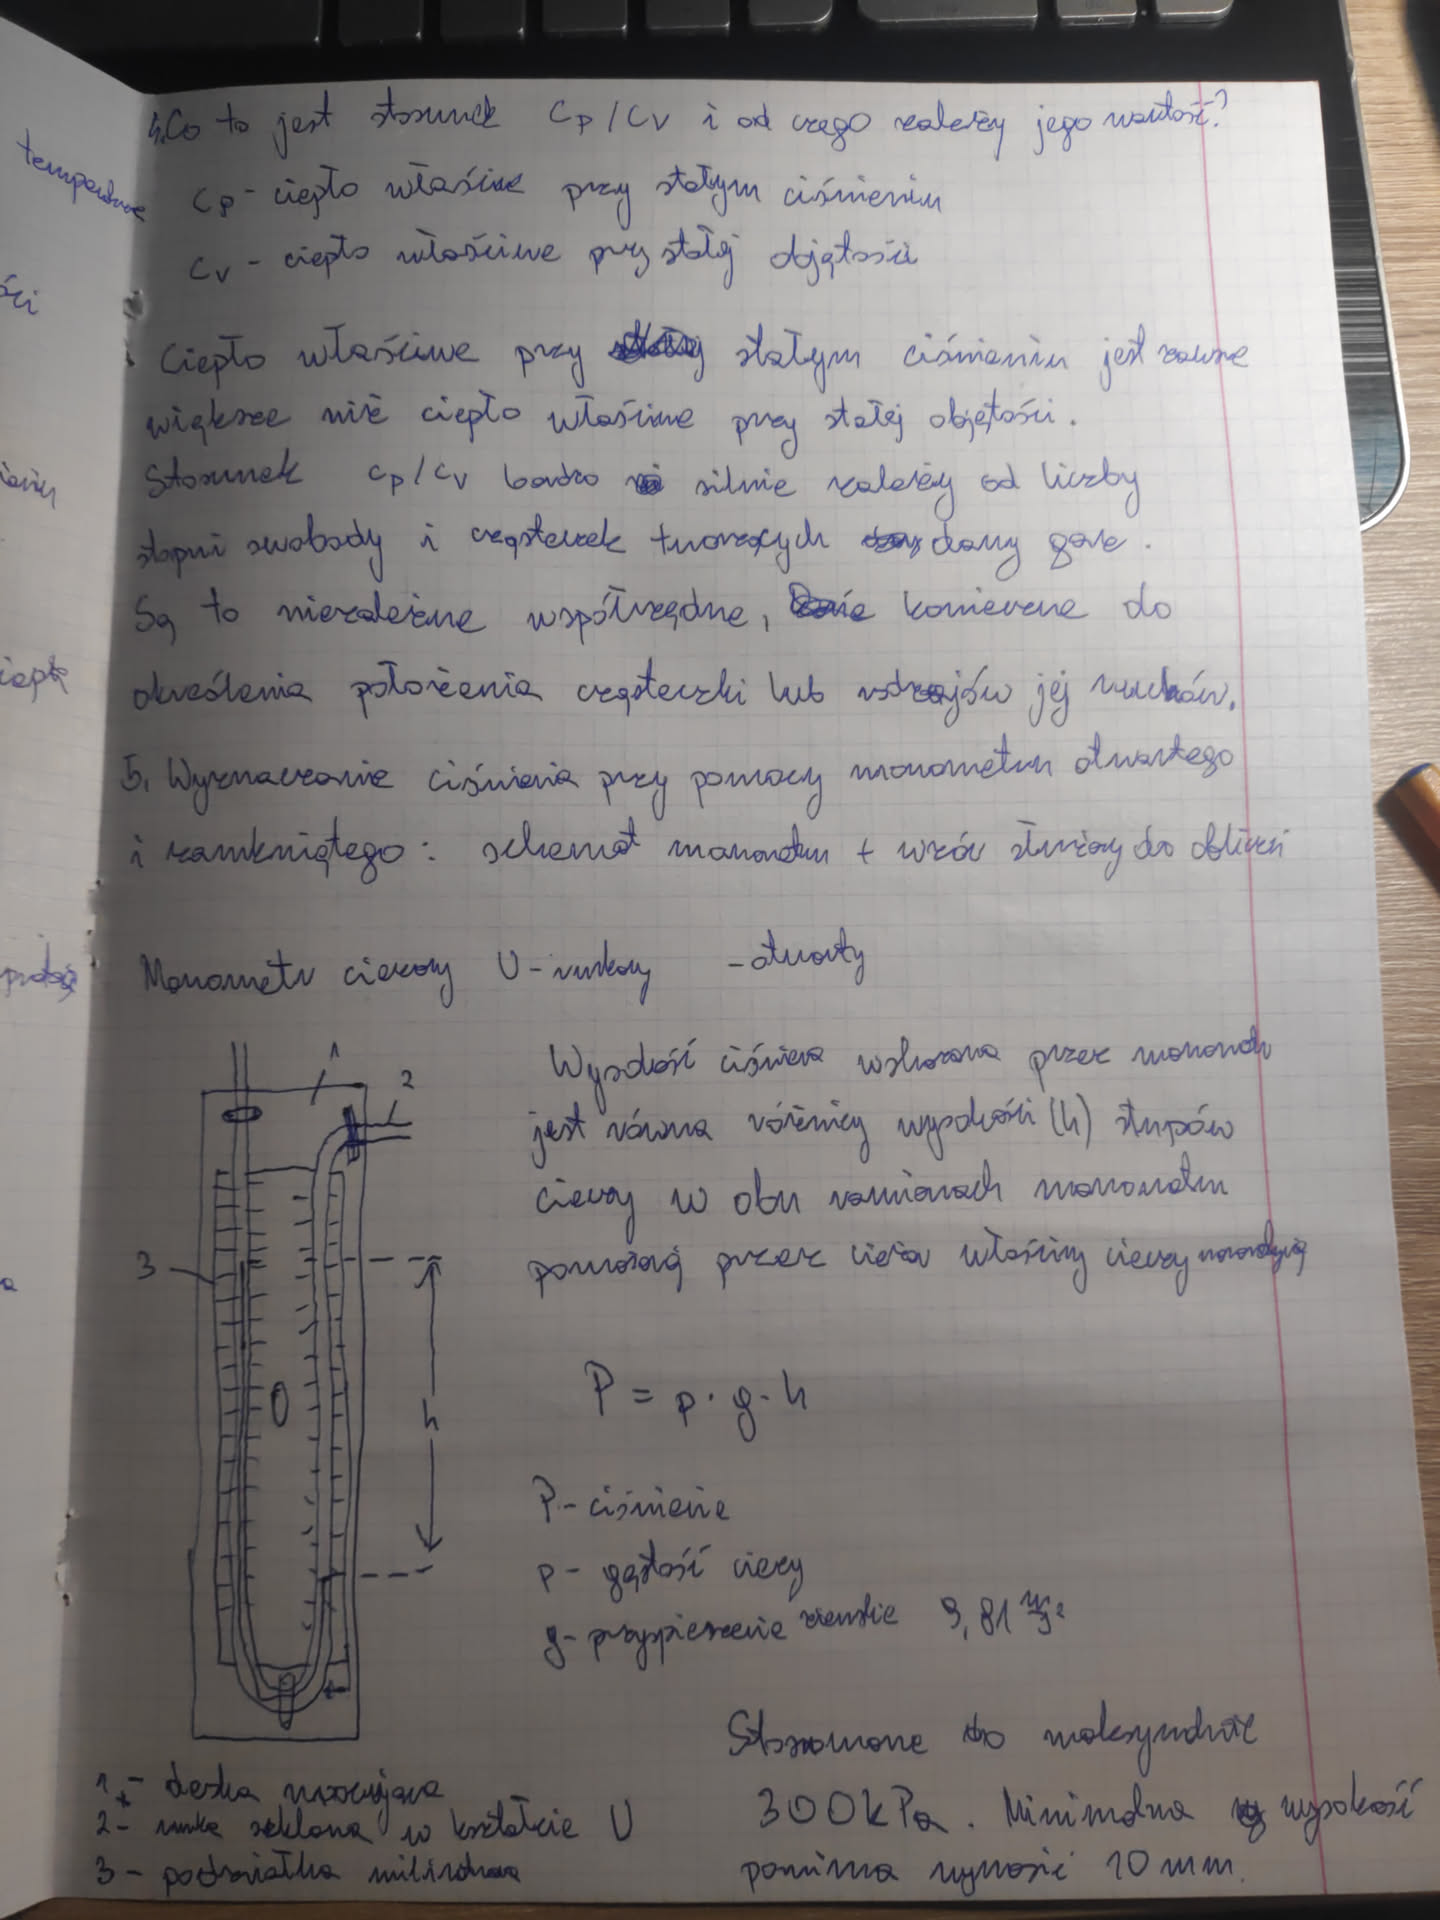 4. Co to jest stosunek Cp/Cv i od czego zależy jego wartość?
Cp - ciepło właściwe przy stałym ciśnieniu
Cv - ciepło właściwe przy stałej objętości
Ciepło właściwe przy stałym ciśnieniu jest zawsze
większe niż ciepło właściwe przy stałej objętości.
Stosunek cp/cv bardzo silnie zależy od liczby
stopni swobody i cząsteczek tworzących dany gaz.
Są to niezależne współrzędne, konieczne do
określenia położenia cząsteczki lub rodzajów jej ruchów.
5. Wyznaczanie ciśnienia przy pomocy manometru otwartego
i zamkniętego: schemat manometru + wzór służący do obliczeń
Manometr cieczowy U-rurkowy - otwarty
1
2
3
h
0
Wysokość ciśnienia wskazana przez manometr
jest równa różnicy wysokości (h) słupów
cieczy w obu ramionach manometru
pomnożoną przez ciężar właściwy cieczy manometrycznej
P = ρ · g · h
P - ciśnienie
ρ - gęstość cieczy
g - przyspieszenie ziemskie 9,81 m/s²
Stosowane do maksymalnie
300 kPa. Minimalna wysokość
pomiaru wynosić 10 mm.
1 - deska mocująca
2 - rurka szklana w kształcie U
3 - podziałka milimetrowa
temperaturze
ości
ciepła